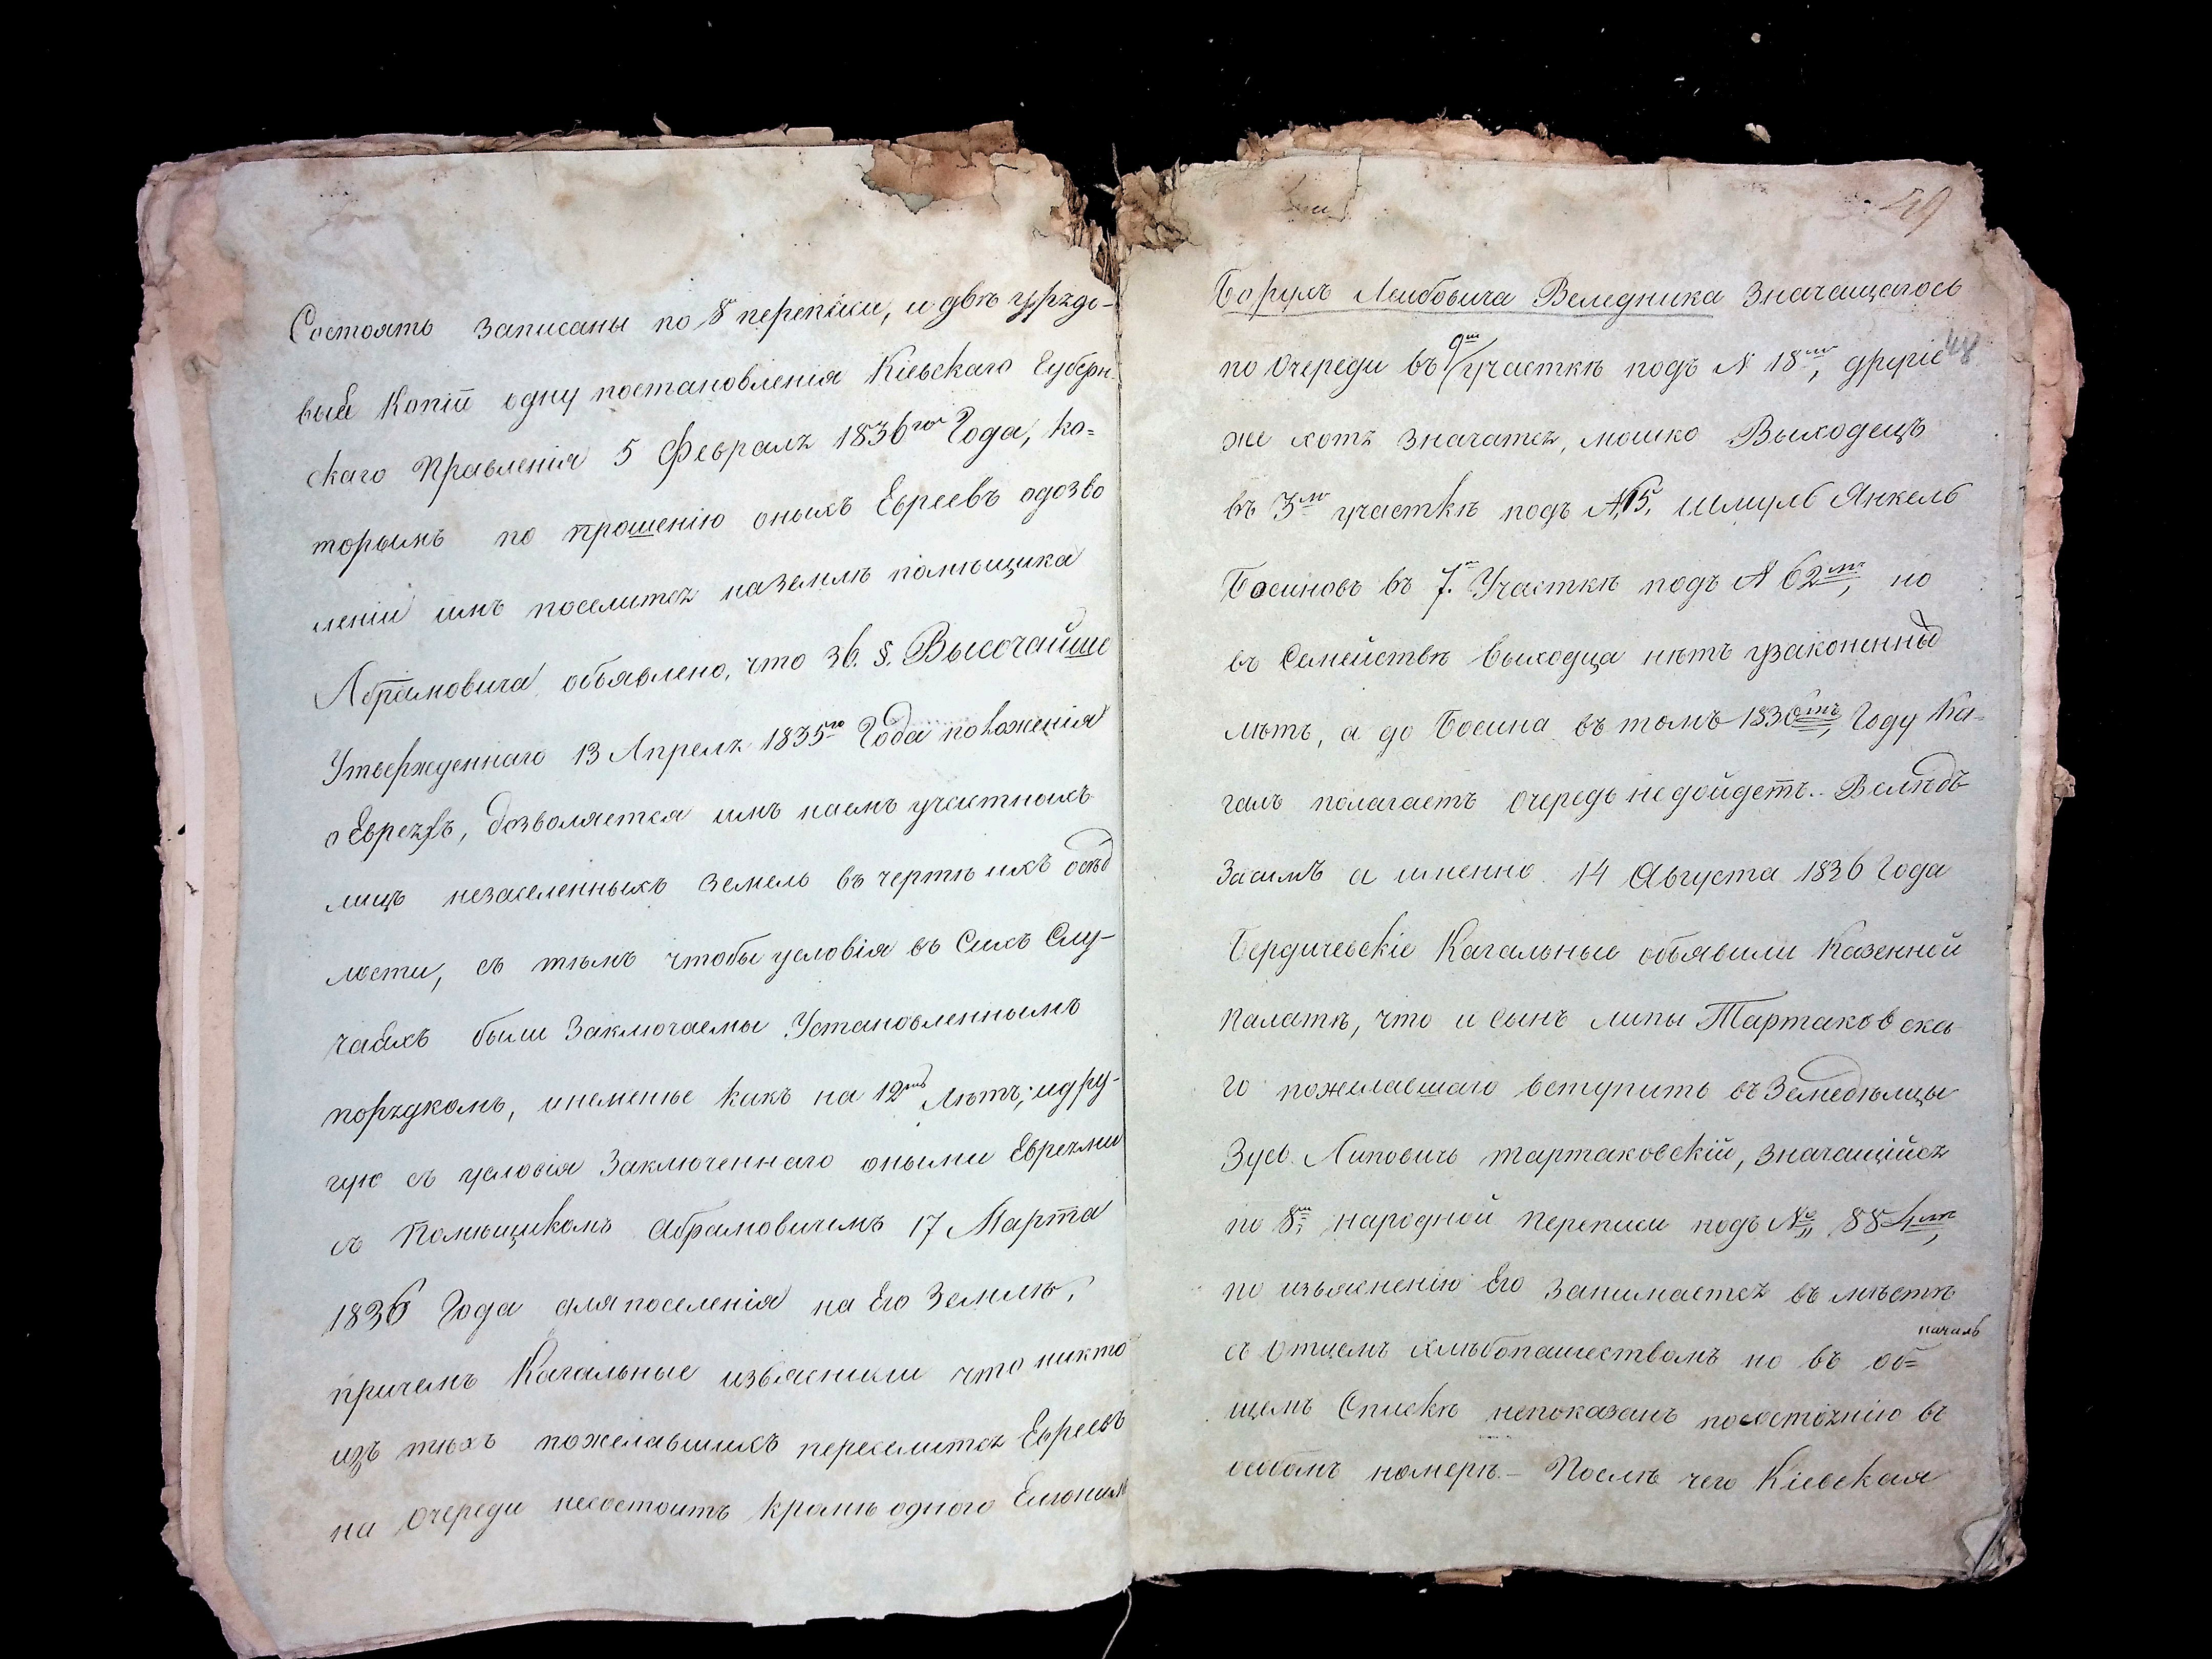 Состоятъ записаны по 8 переписи, и двѣ урядо-
вый копій одну постановленія Кіевскаго Губерн-
скаго Правленія 5 Февраля 1836го Года, ко=
торымъ по прошенію оныхъ Евреевъ одозво
леніи имъ поселится наземлѣ помѣщика
Абрамовича объявлено, что 36. §. Высочайше
Утвержденнаго 13 Апреля 1835го Года положенія
о Евреяхъ, дозволяется имъ наемъ участныхъ
лицъ незаселенныхъ земель въ чертѣ ихъ осѣд
лости, съ тѣмъ чтобы условія въ Сихъ Слу-
чаяхъ были Заключаемы Установленнымъ
порядкомъ, инеменѣе какъ на 12ть Лѣтъ; и дру-
гую съ условія Заключеннаго оными Евреями
съ Помѣщикомъ Абрамовичемъ 17 Марта
1836 Года для поселенія на Его Землѣ,
причемъ Кагальные изъяснили что никто
изъ тѣхъ пожелавшихъ переселится Евреевъ
на очереди несостоитъ кромѣ одного
49
Борухъ Леибовича Веледника Значащагось
по Очереди въ 9м участкѣ подъ N 18мъ, другіе 48
же хотя значатся, мошко Выходецъ
въ 3мъ участкѣ подъ N 15, Шмуль Янкель
Босиновъ въ 7. Участкѣ подъ N 62мъ, но
въ Семействѣ выходца нѣтъ узаконенны
лѣтъ, а до Босина въ томъ 1836мъ Году Ка=
галъ полагаетъ очередь недойдетъ. Вслѣдъ
Засимъ а именно 14 Августа 1836 Года
Бердичевскіе Кагальные объявили Казенной
Палатѣ, что и сынъ липы Тартаковска
го пожелавшаго вступить въ Земледѣльцы
Зусь Липовичь тартаковскій, значащійся
по 8й народной переписи подъ № 884мъ,
по изъясненію Его Занимается въ мѣстѣ
съ Отцемъ хлѣбопашествомъ но въ об=
щемъ Спискѣ непоказанъ посостоянію въ
особомъ номерѣ – Послѣ чего Кіевская